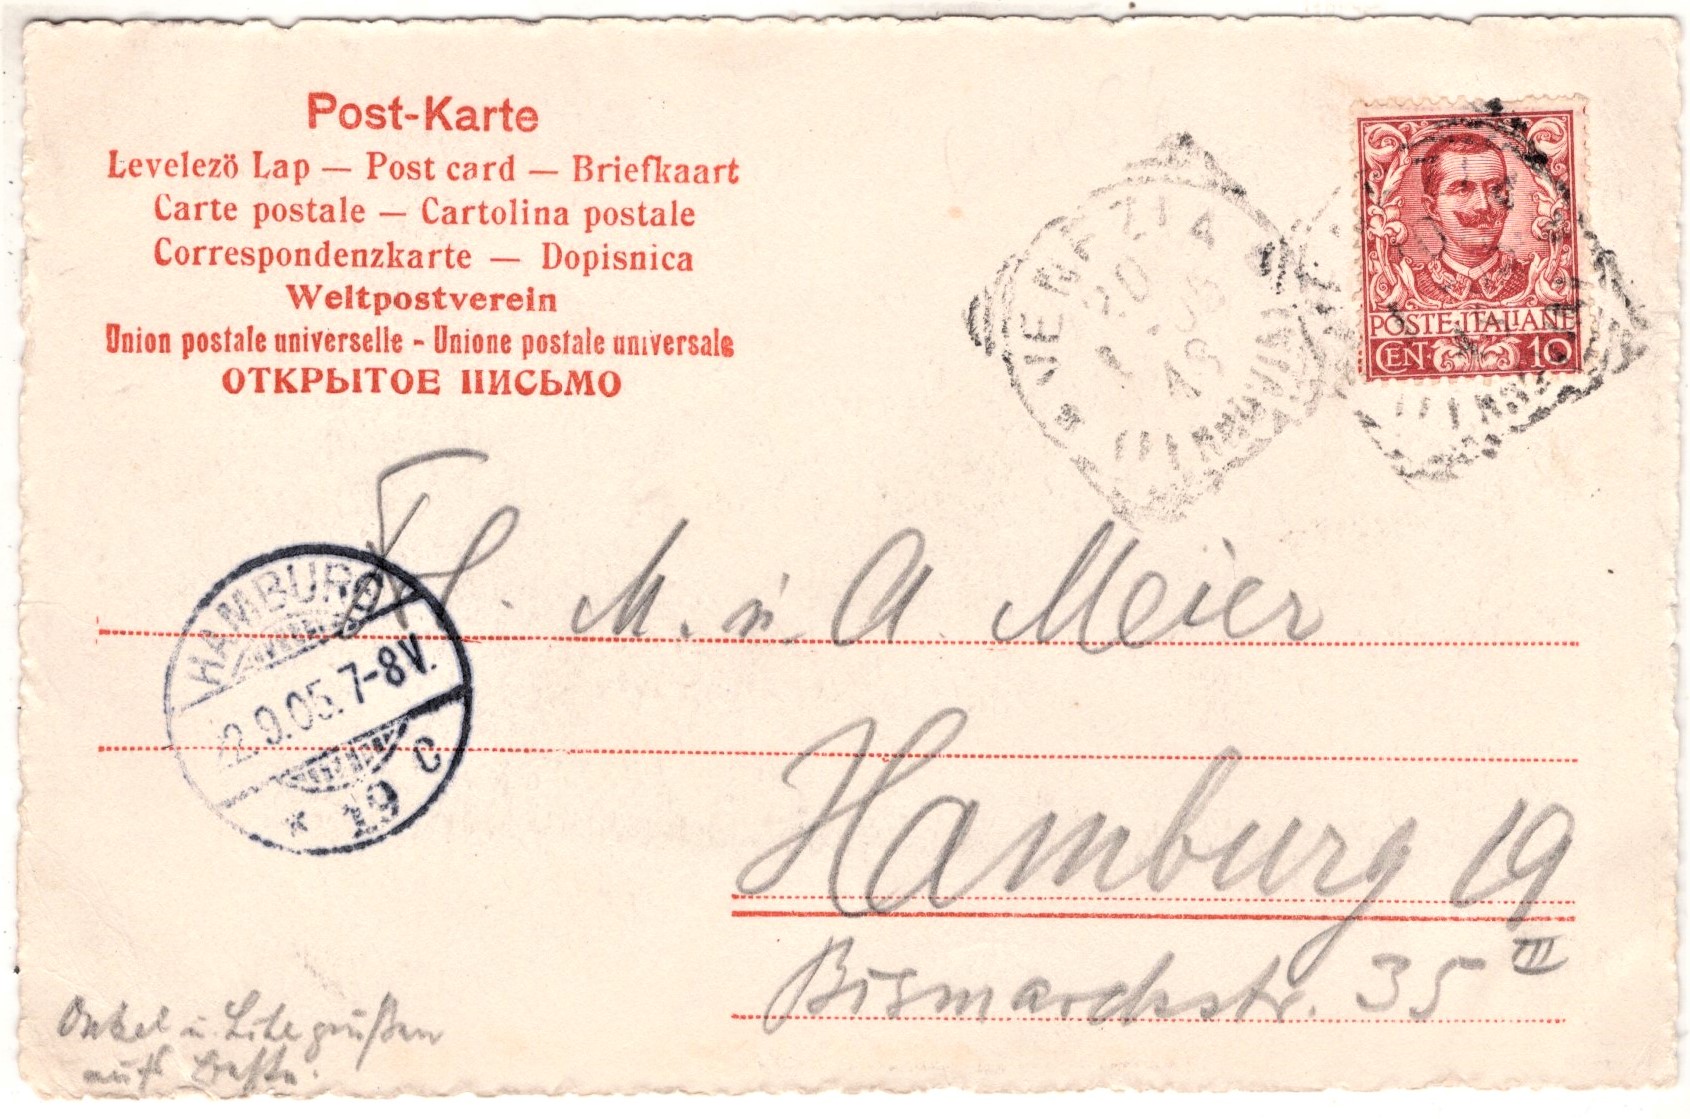 Post-Karte
Levelezö Lap — Post card — Briefkaart
Carte postale — Cartolina postale
Correspondenzkarte — Dopisnica
Weltpostverein
Union postale universelle - Unione postale universale
ОТКРЫТОЕ ПИСЬМО
VENEZIA
20
05
18
POSTE·ITALIANE
CEN· 10
HAMBURG
2.9.05. 7-8V.
* 19
M. u. A. Meier
Hamburg 19
Bismarckstr. 35 III
Onkel u. grüßen
aufs Beste.